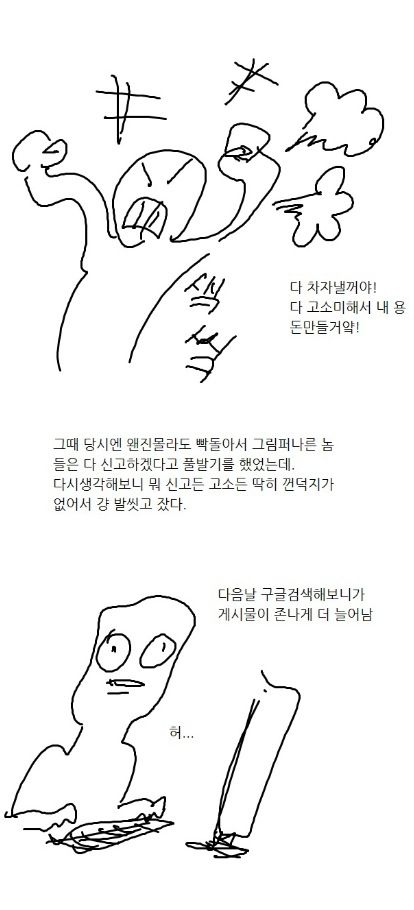 씩씩
다 차자낼꺼야!
다 고소미해서 내 용
돈만들거얔!
그때 당시엔 왠진몰라도 빡돌아서 그림퍼나른 놈
들은 다 신고하겠다고 풀발기를 했었는데.
다시생각해보니 뭐 신고든 고소든 딱히 껀덕지가
없어서 걍 발씻고 잤다.
다음날 구글검색해보니가
게시물이 존나게 더 늘어남
허...